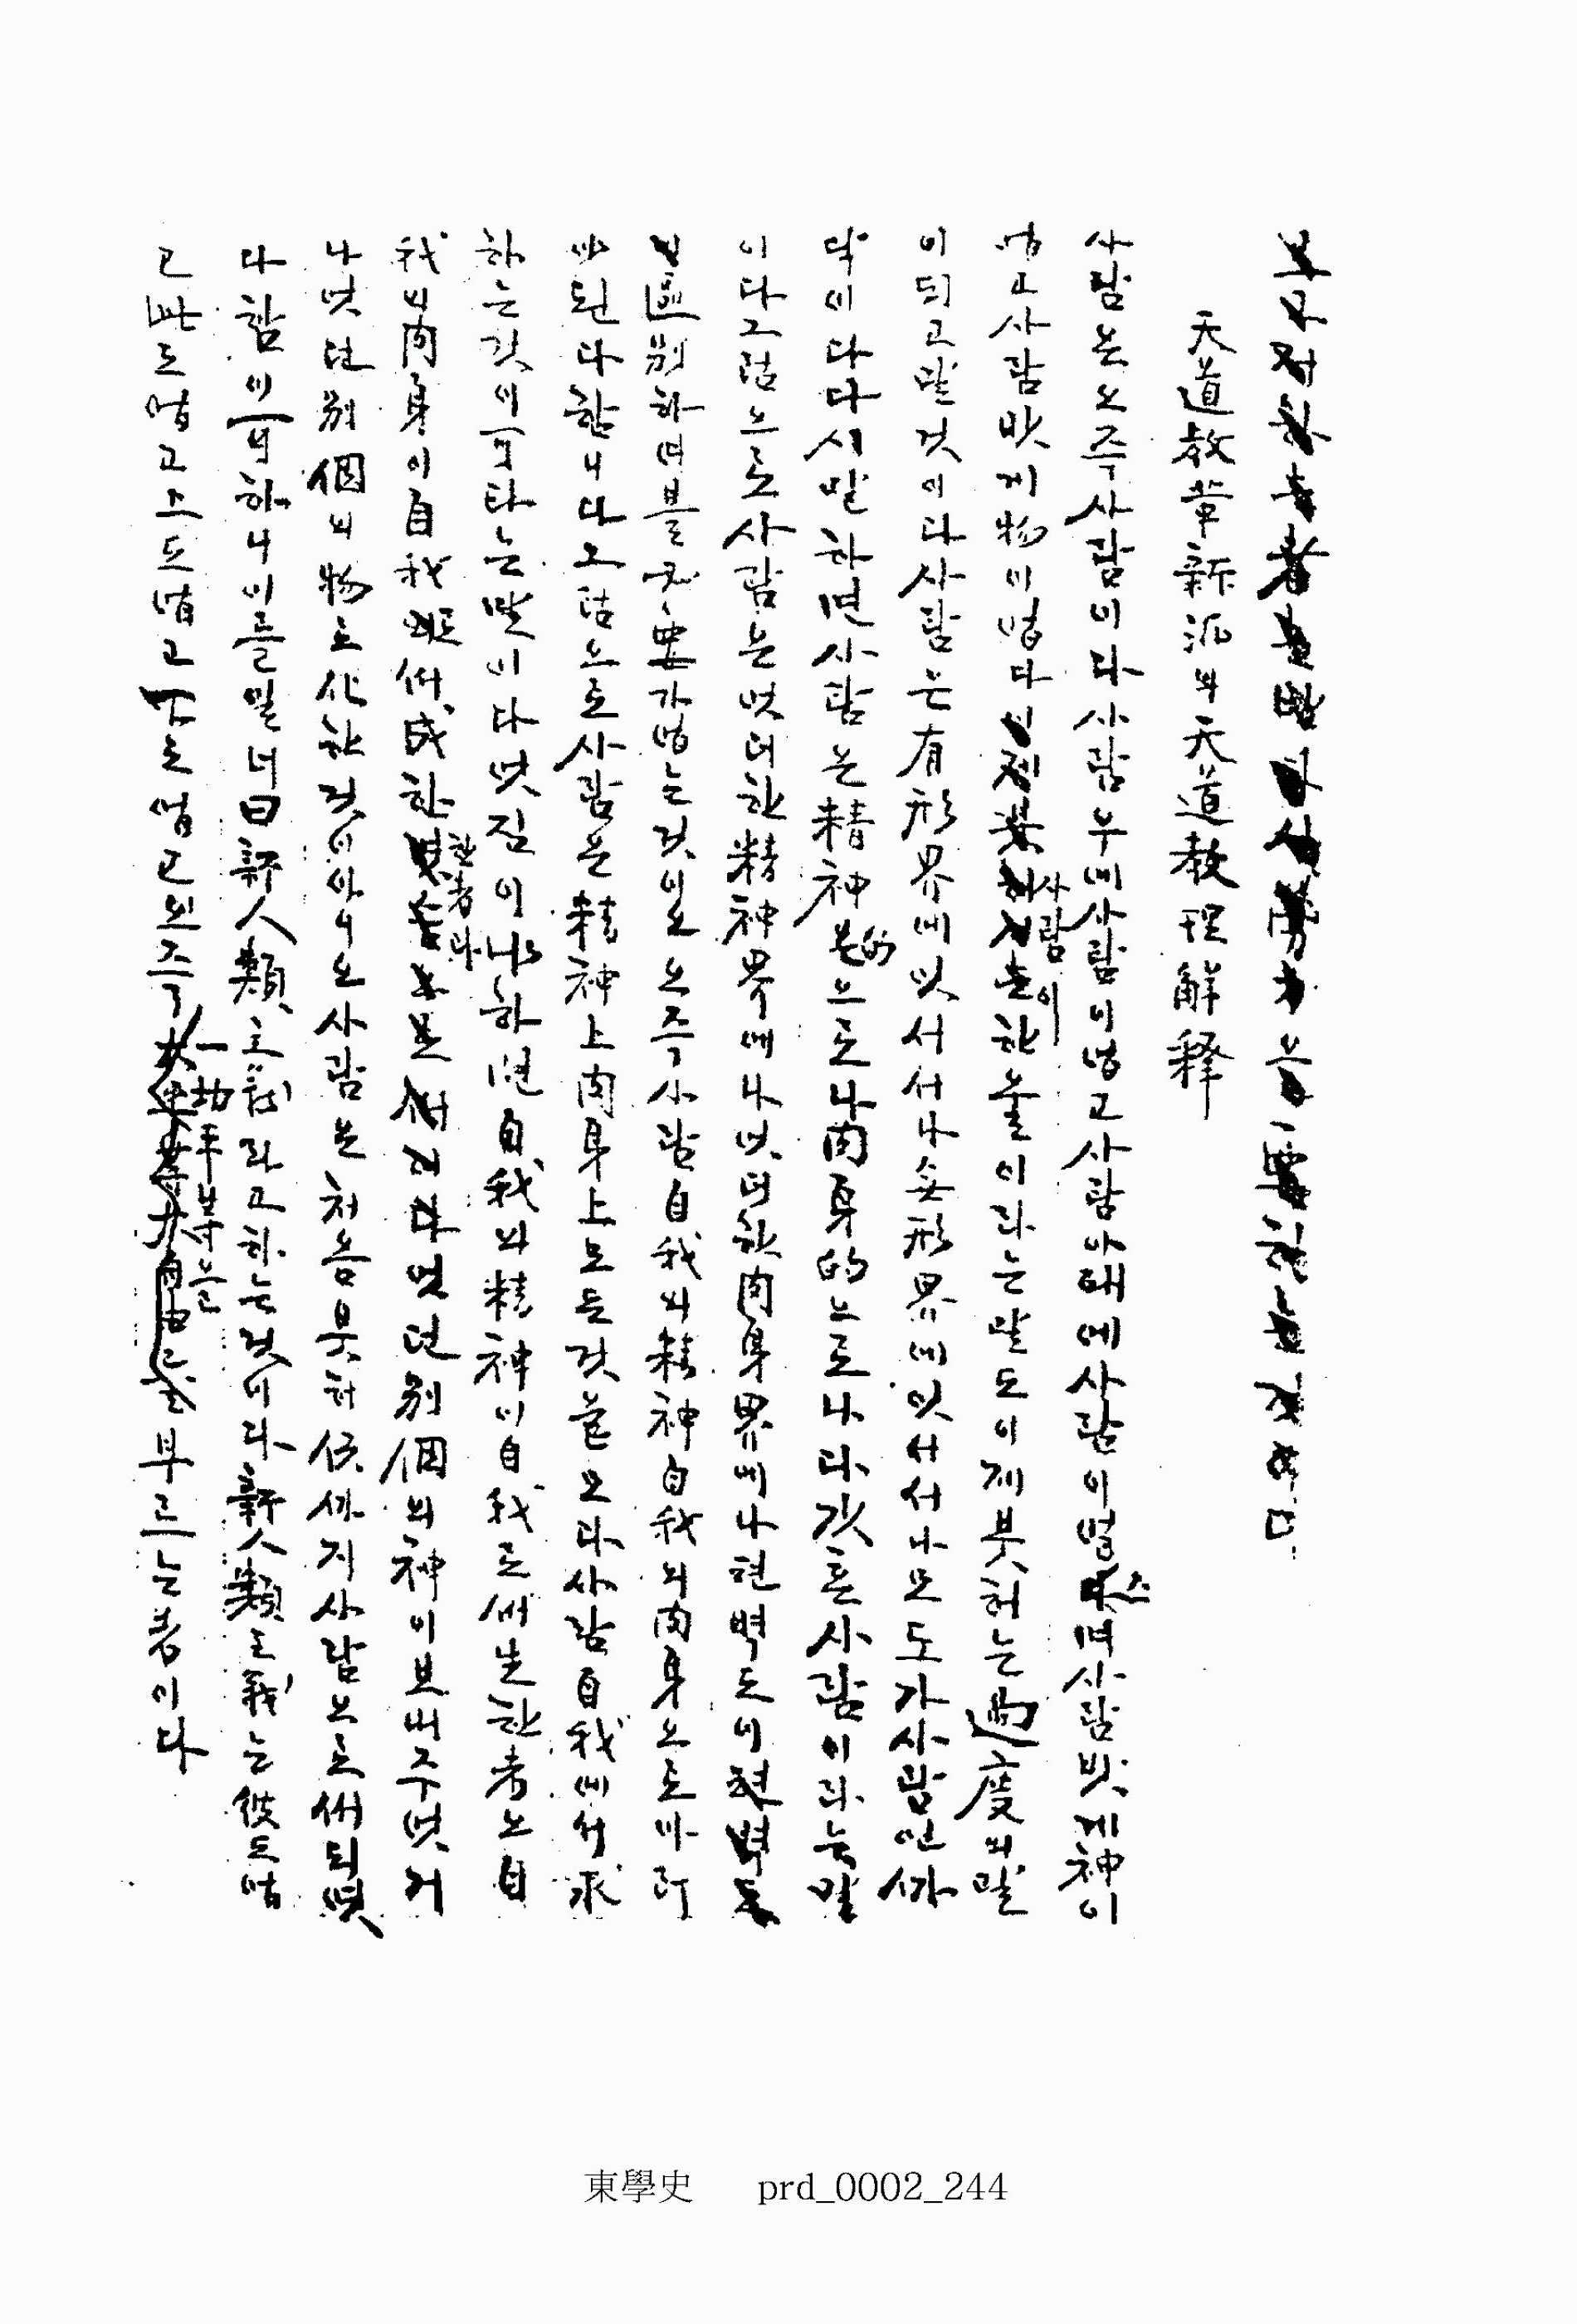 天道敎革新派의 天道敎理解釋
사람은 오즉 사람이다 사람 우에 사람이 업고 사람 아래에 사람이 업스며 사람 밧게 神이
업고 사람 밧게 物이 업다 사람이 한울이라는 말도 이제붓허는 過度의 말
이 되고 말 것이다 사람은 有形界에 잇서서나 無形界에 잇서서나 모도가 사람인 까
닥이다 다시 말하면 사람은 精神的으로나 肉身的으로나 다 갓흔 사람이라는 말
이다 그럼으로 사람은 엇더한 精神界에나 엇더한 肉身界에나 현벽도이
의 區別하며 볼 必要가 업는 것이오 오즉 사람 自我의 精神 自我의 肉身으로 바로
쌔된다 함니다 그럼으로 사람은 精神上 肉身上 모든 것을 모다 사람 自我에서 求
하는 것이 可타는 말이다 엇짐이냐 하면 自我의 精神이 自我로 써 生한 者오 自
我의 肉身이 自我로써 成한 者라 엇던 別個의 神이 보내주엇거
나 엇던 別個의 物로 化한 것이 아니오 사람은 처음붓허 只今까지 사람으로써 되엿
다 함이 可하니 이를 일너 曰 新人類主義라고 하는 것이다 新人類主義는 彼도 업
고 此도 업고 上도 업고 下도 업고 오즉 一切 平等을 부르는 者이다
東學史 prd_0002_244